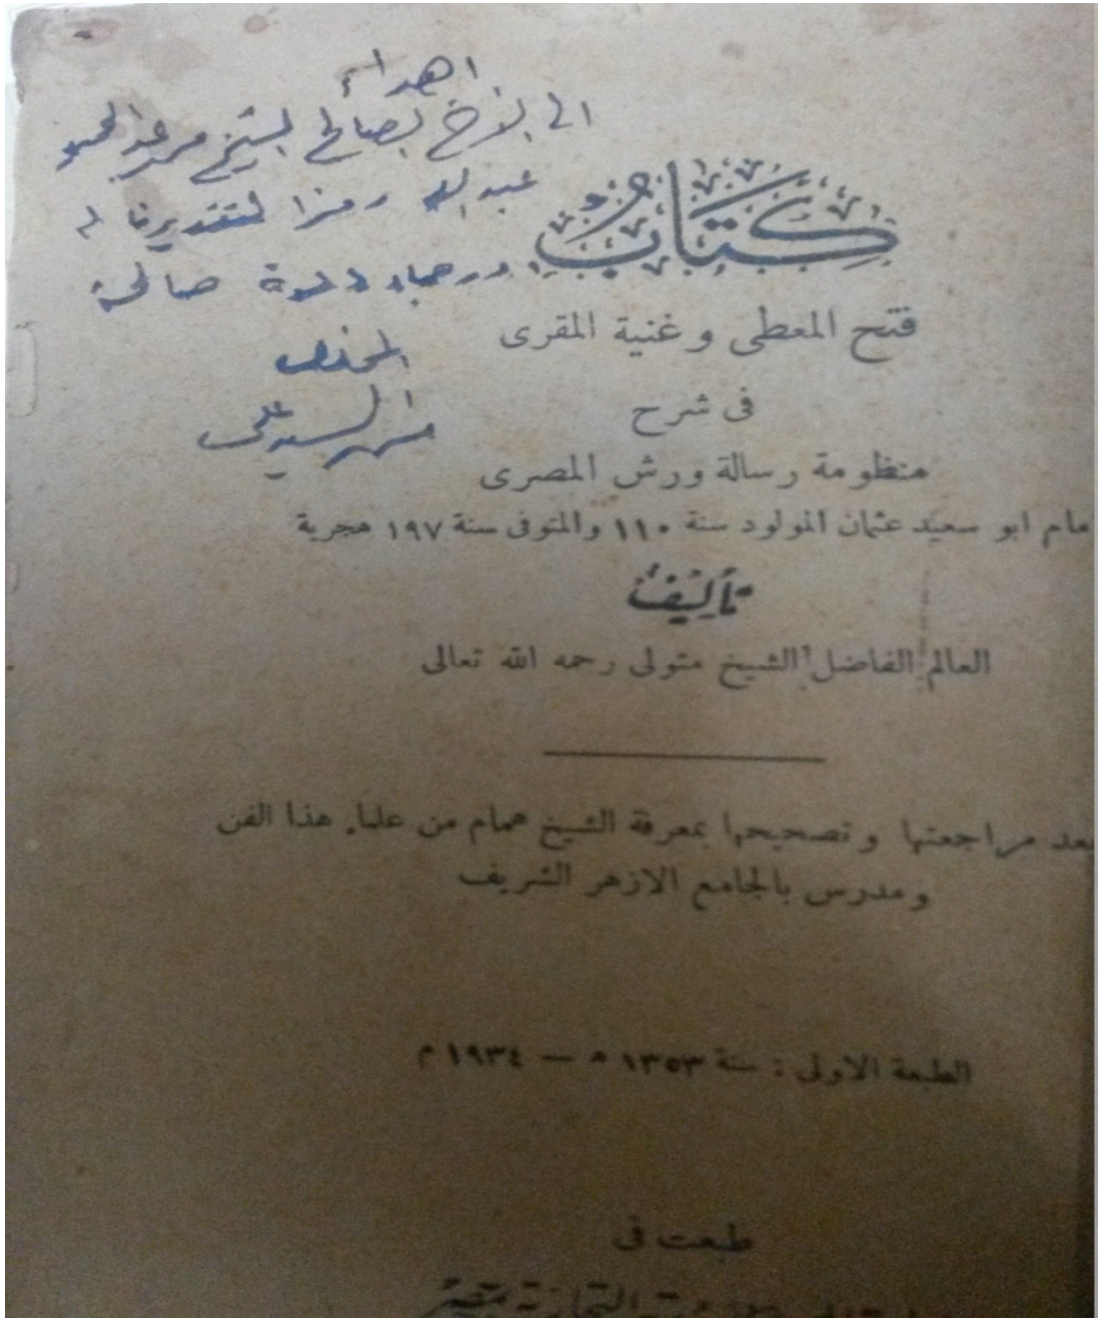 اهداء
الى الأخ الصالح الشيخ محمد عبد الحميد
عبد الله رمزا لتقديرنا له
ورجاء دعوة صالحة
المخلص
السيد علي
كتاب
فتح المعطى و غنية المقرى
فى شرح
منظومة رسالة ورش المصرى
مام ابو سعيد عثمان المولود سنة ١١٠ والمتوفى سنة ١٩٧ هجرية
تأليف
العالم الفاضل الشيخ متولى رحمه الله تعالى
بعد مراجعتها و تصحيحها بمعرفة الشيخ همام من علماء هذا الفن
ومدرس بالجامع الازهر الشريف
الطبعة الاولى : سنة ١٣٥٣ ه — ١٩٣٤ م
طبعت فى
التجارية بمصر